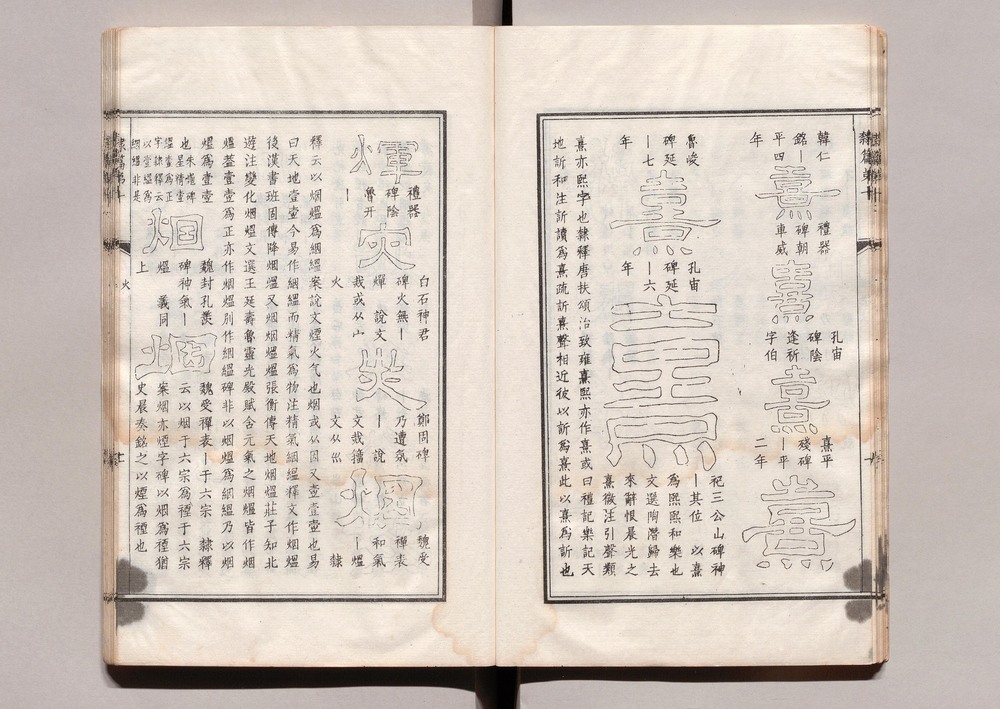 隸篇第十
熹
韓仁
銘—
平四
年
熹
禮器
碑朝
車威
熹
孔宙
碑陰
逢祈
字伯
熹
熹平
殘碑
—平
二年
熹
魯峻
碑延
—七
年
熹
孔宙
碑延
—六
年
熹
祀三公山碑神
—其位 以熹
為熙熙和樂也
文選陶潛歸去
來辭恨晨光之
熹微注引聲類
熹亦熙字也隸釋唐扶頌治致雍熹熙亦作熹或曰禮記樂記天
地訢和注訢讀為熹疏訢熹聲相近彼以訢為熹此以熹為訢也
煇
禮器
碑陰
魯开
—
灾
白石神君
碑火無—
燀 說文
烖或从宀
火
災
鄭周碑
乃遭氛
— 說
文烖籀
文从
烟
魏受
禪表
和氣
—熅
隸
釋云以烟熅為絪縕案說文煙火气也烟或从因又壹壺壹也易
曰天地壹壺今易作絪縕而精氣為物注精氣絪縕釋文作烟熅
後漢書班固傳降烟熅又烟烟熅熅張衡傳天地烟熅莊子知北
遊注變化烟熅文選王延壽魯靈光殿賦含元氣之烟熅皆作烟
熅蓋壹壺為正亦作烟熅別作絪縕碑非以烟熅為絪縕乃以烟
熅為壹壺
也朱龜碑
星精壹
熅壹為正
字隸釋云
以壹熅為
絪縕非是
烟
魏封孔羨
碑神氣—
熅 義同
上
烟
魏受禪表—于六宗 隸釋
云以烟于六宗為禋于六宗
案烟亦煙字碑以烟為禋猶
史晨奏銘之以煙為禋也
火